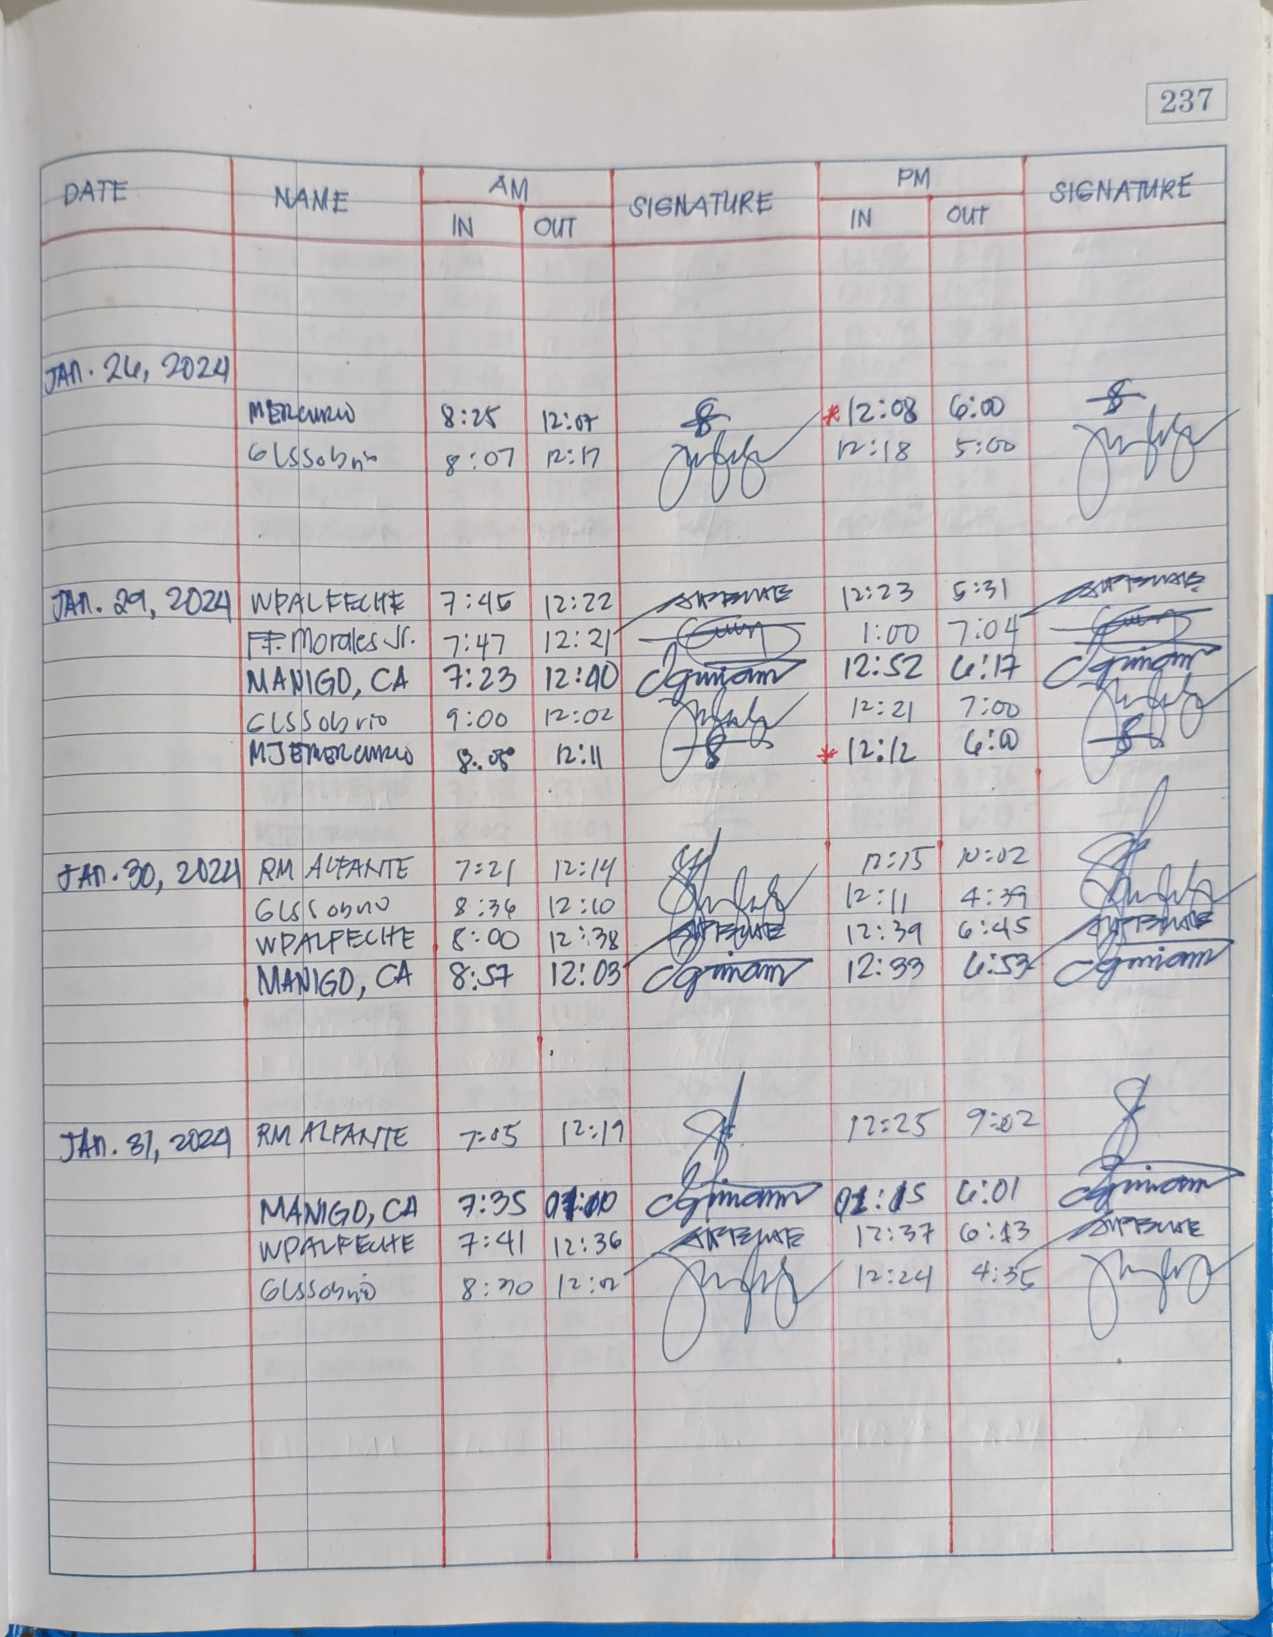 237
DATE NAME AM SIGNATURE PM SIGNATURE
IN OUT IN OUT
JAN. 26, 2024
MERCURIO 8:25 12:07 *12:08 6:00
GLSSobrio 8:07 12:17 12:18 5:00
JAN. 29, 2024 WPALFECHE 7:45 12:22 12:23 5:31
FF. Morales Jr. 7:47 12:21 1:00 7:04
MANIGO, CA 7:23 12:40 12:52 6:17
GLSSobrio 9:00 12:02 12:21 7:00
MJEMERCURIO 8:08 12:11 *12:12 6:00
JAN. 30, 2024 RM ALFANTE 7:21 12:14 12:15 10:02
GLSSobrio 8:36 12:10 12:11 4:39
WPALFECHE 8:00 12:38 12:39 6:45
MANIGO, CA 8:57 12:03 12:33 6:53
JAN. 31, 2024 RM ALFANTE 7:05 12:19 12:25 9:02
MANIGO, CA 7:35 01:00 01:15 6:01
WPALFECHE 7:41 12:36 12:37 6:13
GLSSobrio 8:20 12:02 12:24 4:35